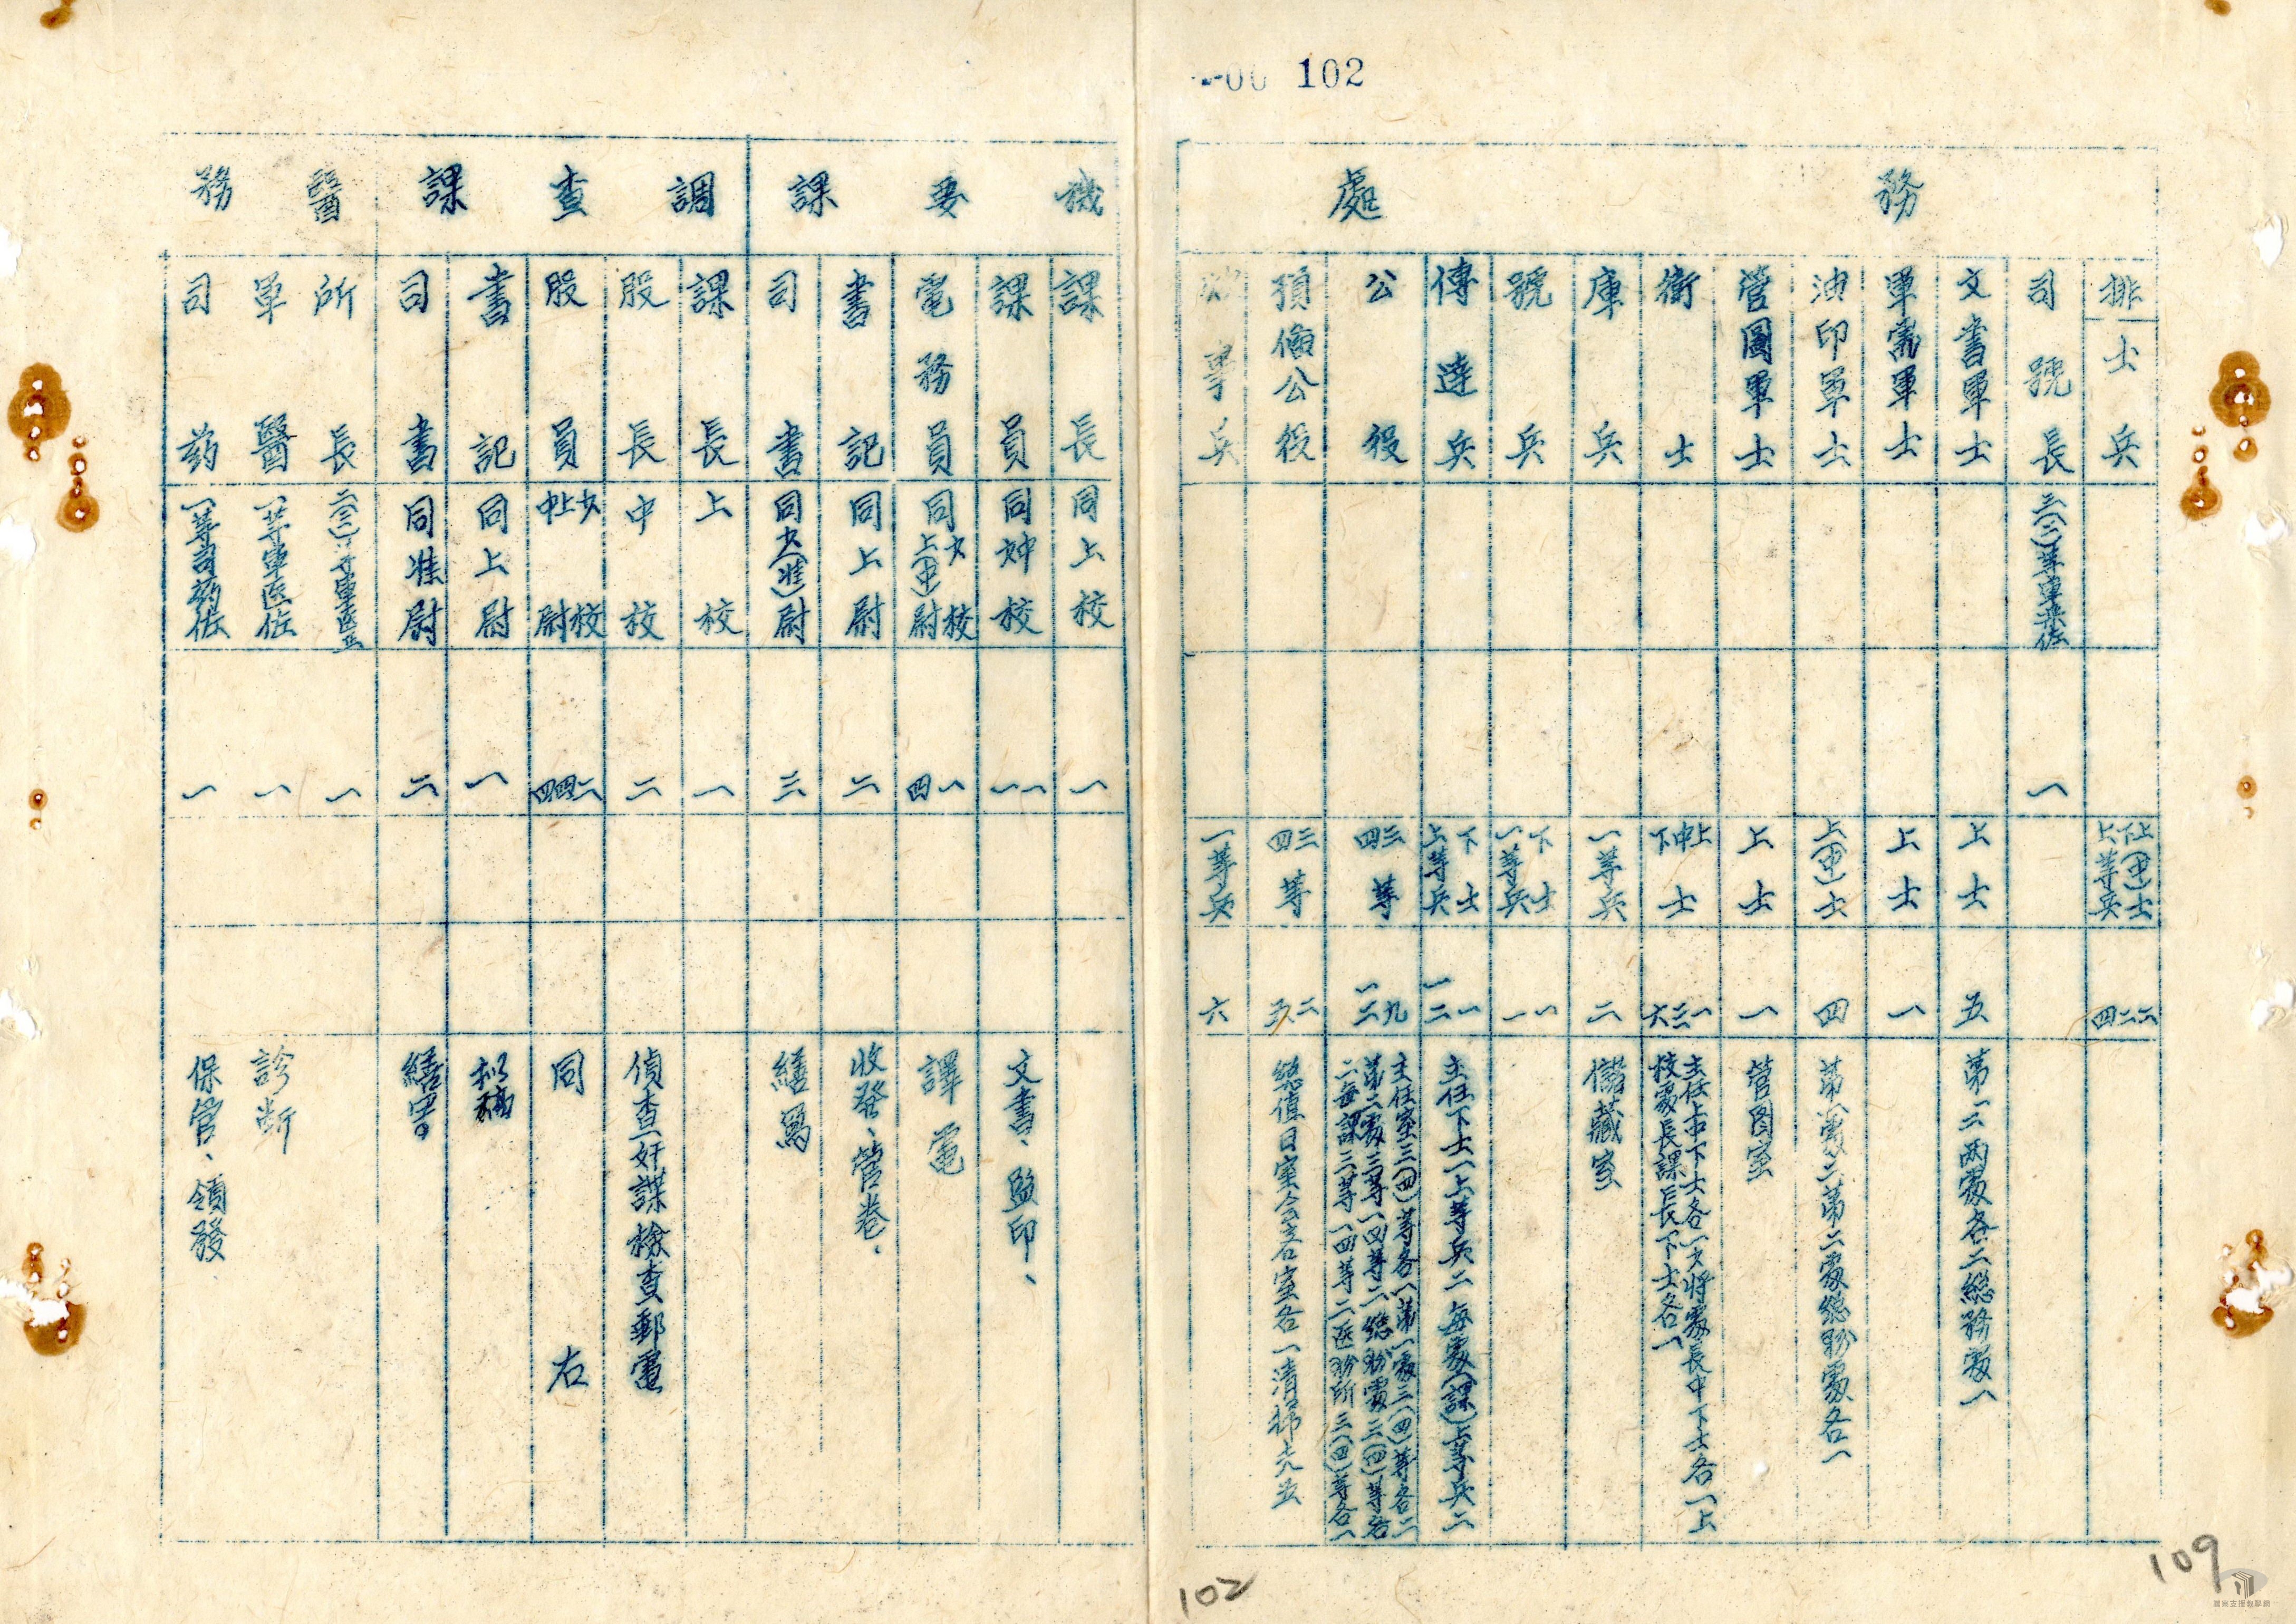 00 102
務處
排士兵 上(中)士 下士 上等兵 二 二 四
司號長 三(二)等軍樂佐 一
文書軍士 上士 五 第一二兩處各二總務處一
軍需軍士 上士 一
油印軍士 上(中)士 四 第一處二第二處總務處各一
管圖軍士 上士 一 管图室
衛士 上中下士 一三六 主任上中下士各一少將處長中下士各一上校處長課長下士各一
庫兵 一等兵 二 儲藏室
號兵 下士 一等兵 一 一
傳達兵 下士 上等兵 一 一二 主任下士一上等兵二每處(課)上等兵二
公役 三四等 九 一三 主任室三(四)等各一第一處三(四)等各二第二處三等一四等二總務處三(四)等各二每課三等一四等二医務所三(四)等各一
預備公役 三四等 二 五 總值日室会客室各一清掃夫五
炊事兵 一等兵 六
機要課
課長 同上校 一
課員 同中少校 一 一 文書、監印、
電務員 同少校 上(中)尉 一 四 譯電
書記 同上尉 二 收發、管卷、
司書 同少(准)尉 三 繕寫
調查課
課長 上校 一
股長 中校 二 偵查奸諜檢查郵電
股員 少校 上中尉 二 四 四 同右
書記 同上尉 一 拟稿
司書 同准尉 二 繕寫
醫務
所長 二(三)等軍医正 一
軍醫 一等軍医佐 一 診断
司药 一等司药佐 一 保管、領發
102
109
檔案支援教學網